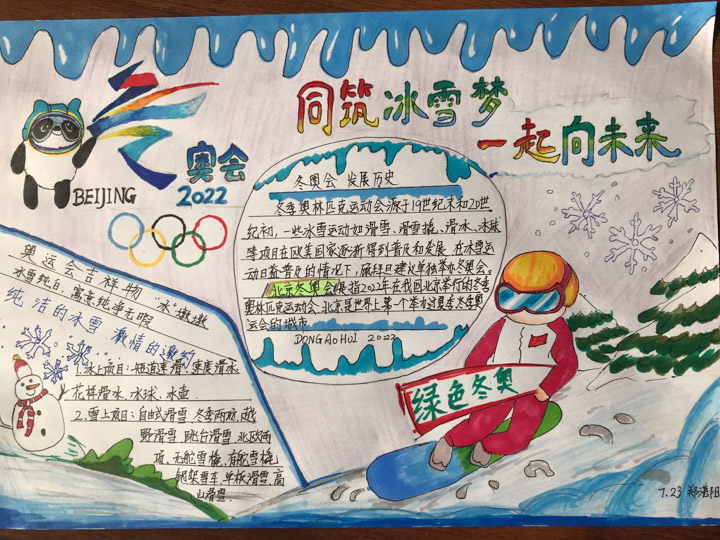 同筑冰雪梦
一起向未来
冬奥会
2022
BEIJING
冬奥会 发展历史
冬季奥林匹克运动会源于19世纪末和20世
纪初,一些冰雪运动如滑雪、滑雪橇、滑冰、冰球
等项目在欧美国家逐渐得到普及和发展,在冰雪运
动日益普及的情况下,
建议单独举办冬奥会。
北京冬奥会是指2022年在我国北京举行的冬季
奥林匹克运动会,北京是世界上第一个举办过夏季冬季奥
运会的城市
DONG AO HUI 2022
奥运会吉祥物 "冰"墩墩
冰雪纯白,寓意纯净无暇
纯洁的冰雪 激情的邀约
1.冰上项目:短道速滑、速度滑冰
花样滑冰、冰球、冰壶
2.雪上项目:自由式滑雪、冬季两项、越
野滑雪、跳台滑雪、北欧两
项、无舵雪橇、有舵雪橇
钢架雪车、单板滑雪、高
山滑雪
绿色冬奥
7.23